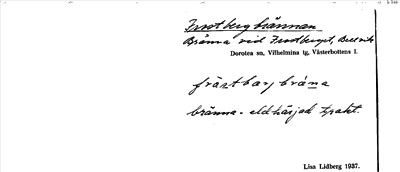 Frostbergbrännan
Bränna vid Frostberget, Bredvik
Dorotea sn, Vilhelmina tg, Västerbottens l.
fråstbarjbråna
bränna - eldhärjad trakt.
Lisa Lidberg 1937.